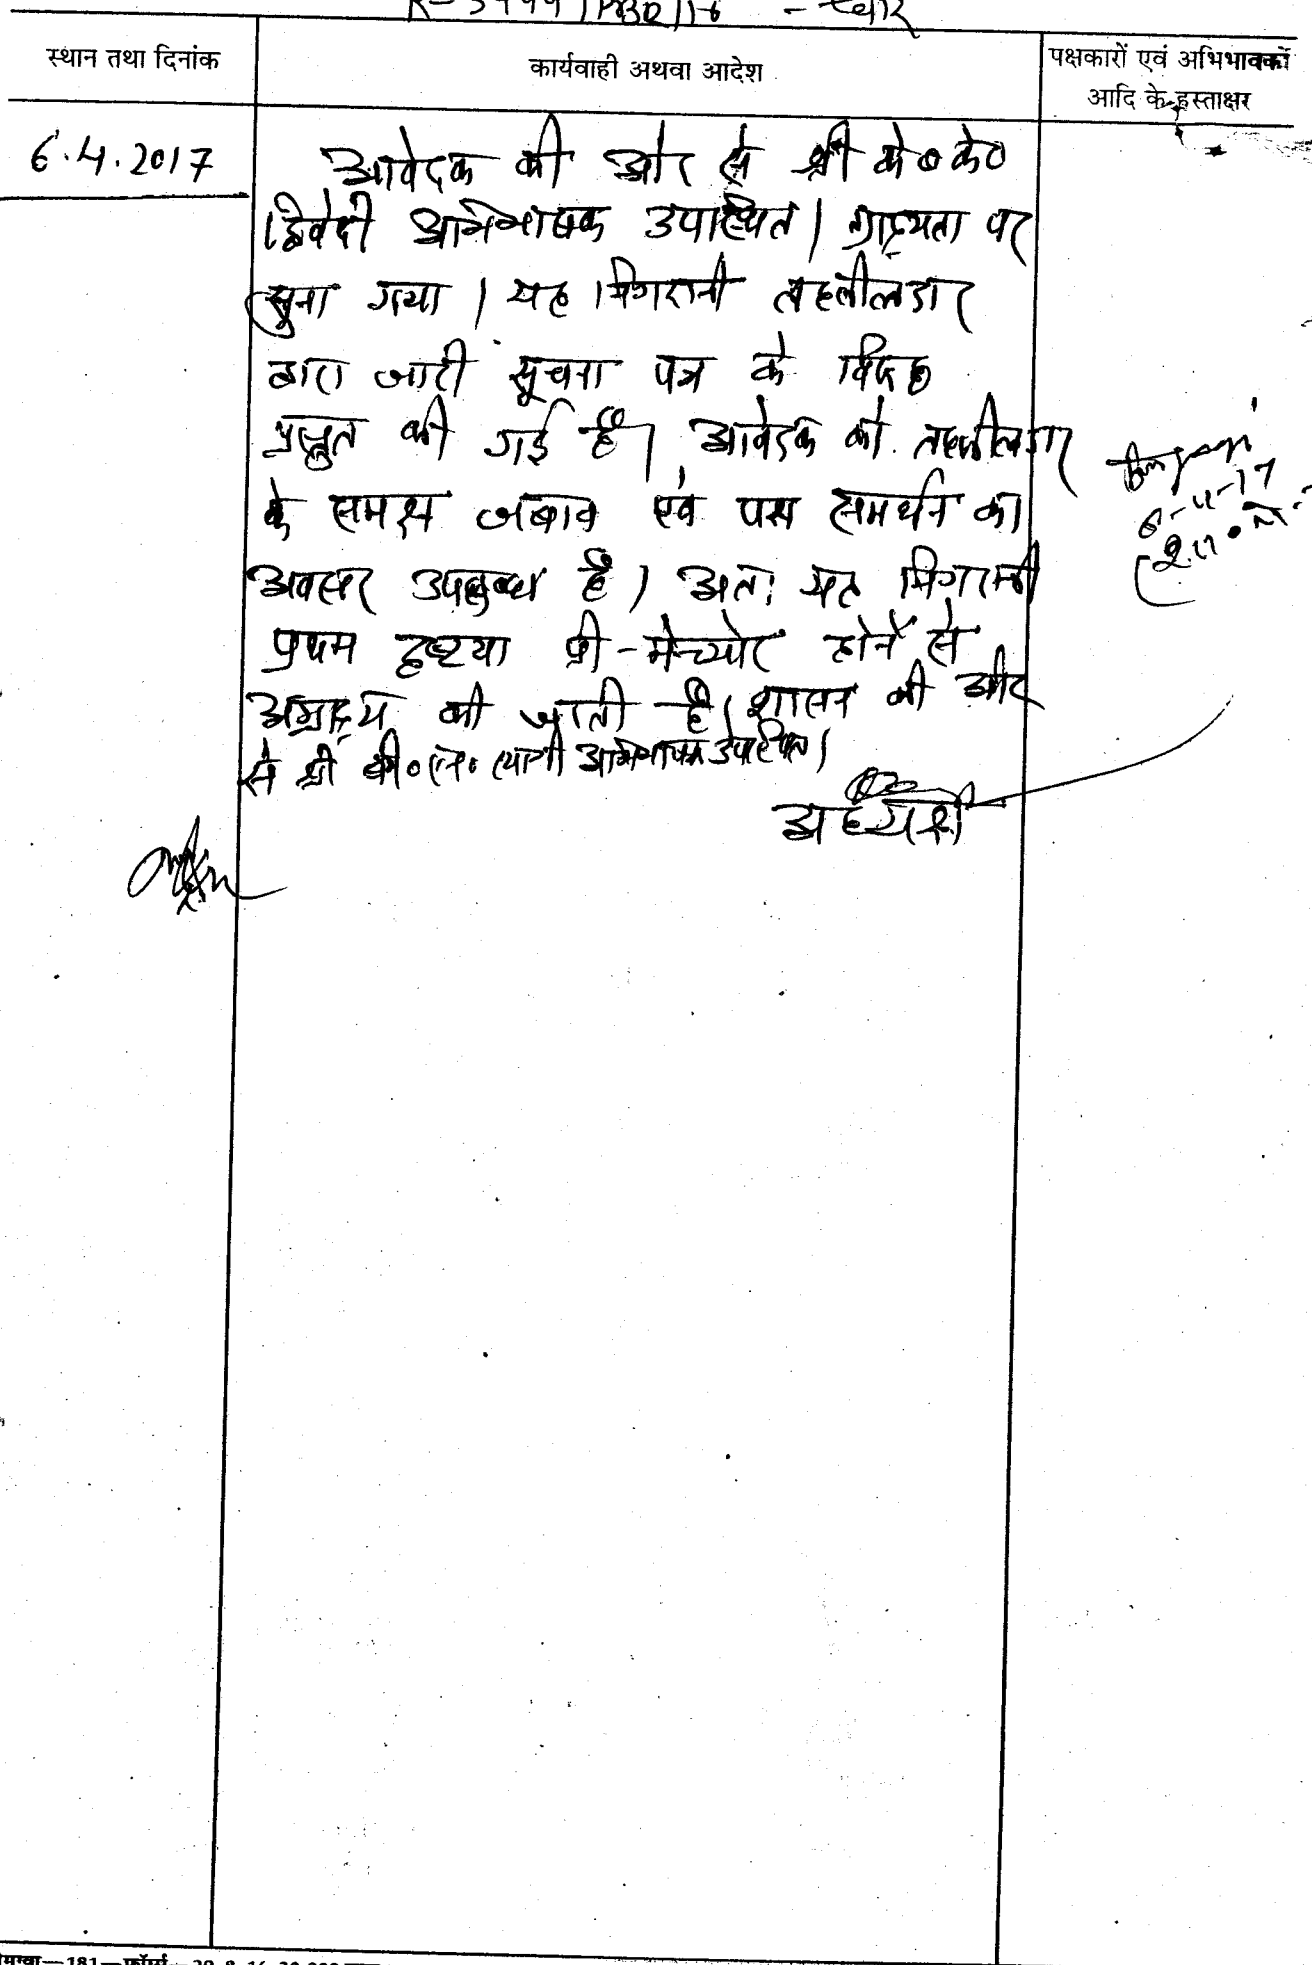 स्थान तथा दिनांक
कार्यवाही अथवा आदेश
पक्षकारों एवं अभिभावकों
आदि के हस्ताक्षर
6.4.2017
आवेदक की ओर से श्री के० के०
द्विवेदी अभिभाषक उपस्थित। ग्राह्यता पर
सुना गया। यह निगरानी तहसीलदार
द्वारा जारी सूचना पत्र के विरूद्ध
प्रस्तुत की गई है। आवेदक को तहसीलदार
के समक्ष जबाव एवं पक्ष समर्थन का
अवसर उपलब्ध है। अतः यह निगरानी
प्रथम दृष्टया प्री-मेच्योर होने से
अग्राह्य की जाती है। शासन की ओर
से श्री बी० एन० त्यागी अभिभाषक उपस्थित।
अध्यक्ष
6-4-17